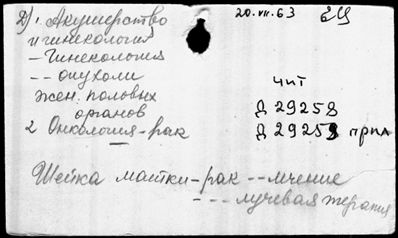 Д) 1. Акушерство 20.VII.63 БЦ
и гинекология
- Гинекология
-- опухоли
жен. половых
органов
чит
Д 29258
2 Онкология - рак Д 29259 прил
Шейка матки - рак -- лечение
--- лучевая терапия